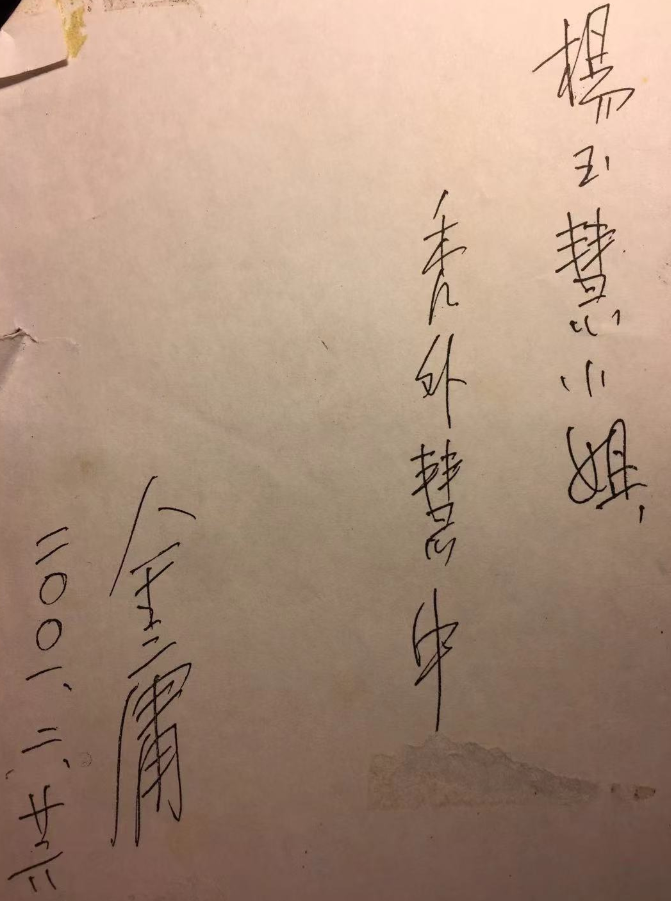 楊玉慧小姐
秀外慧中
金庸
二〇〇一、二、廿二